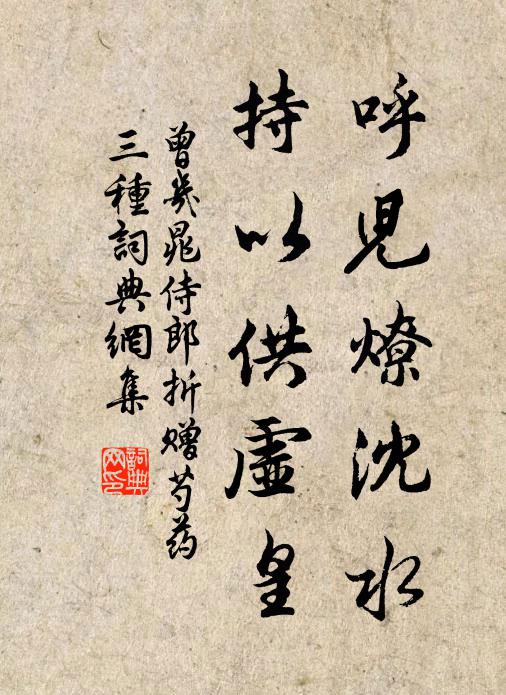 呼兒燎沈水
持以供虛皇
曾幾晁侍郎折贈芍药
三種詞典網集
詞典網印